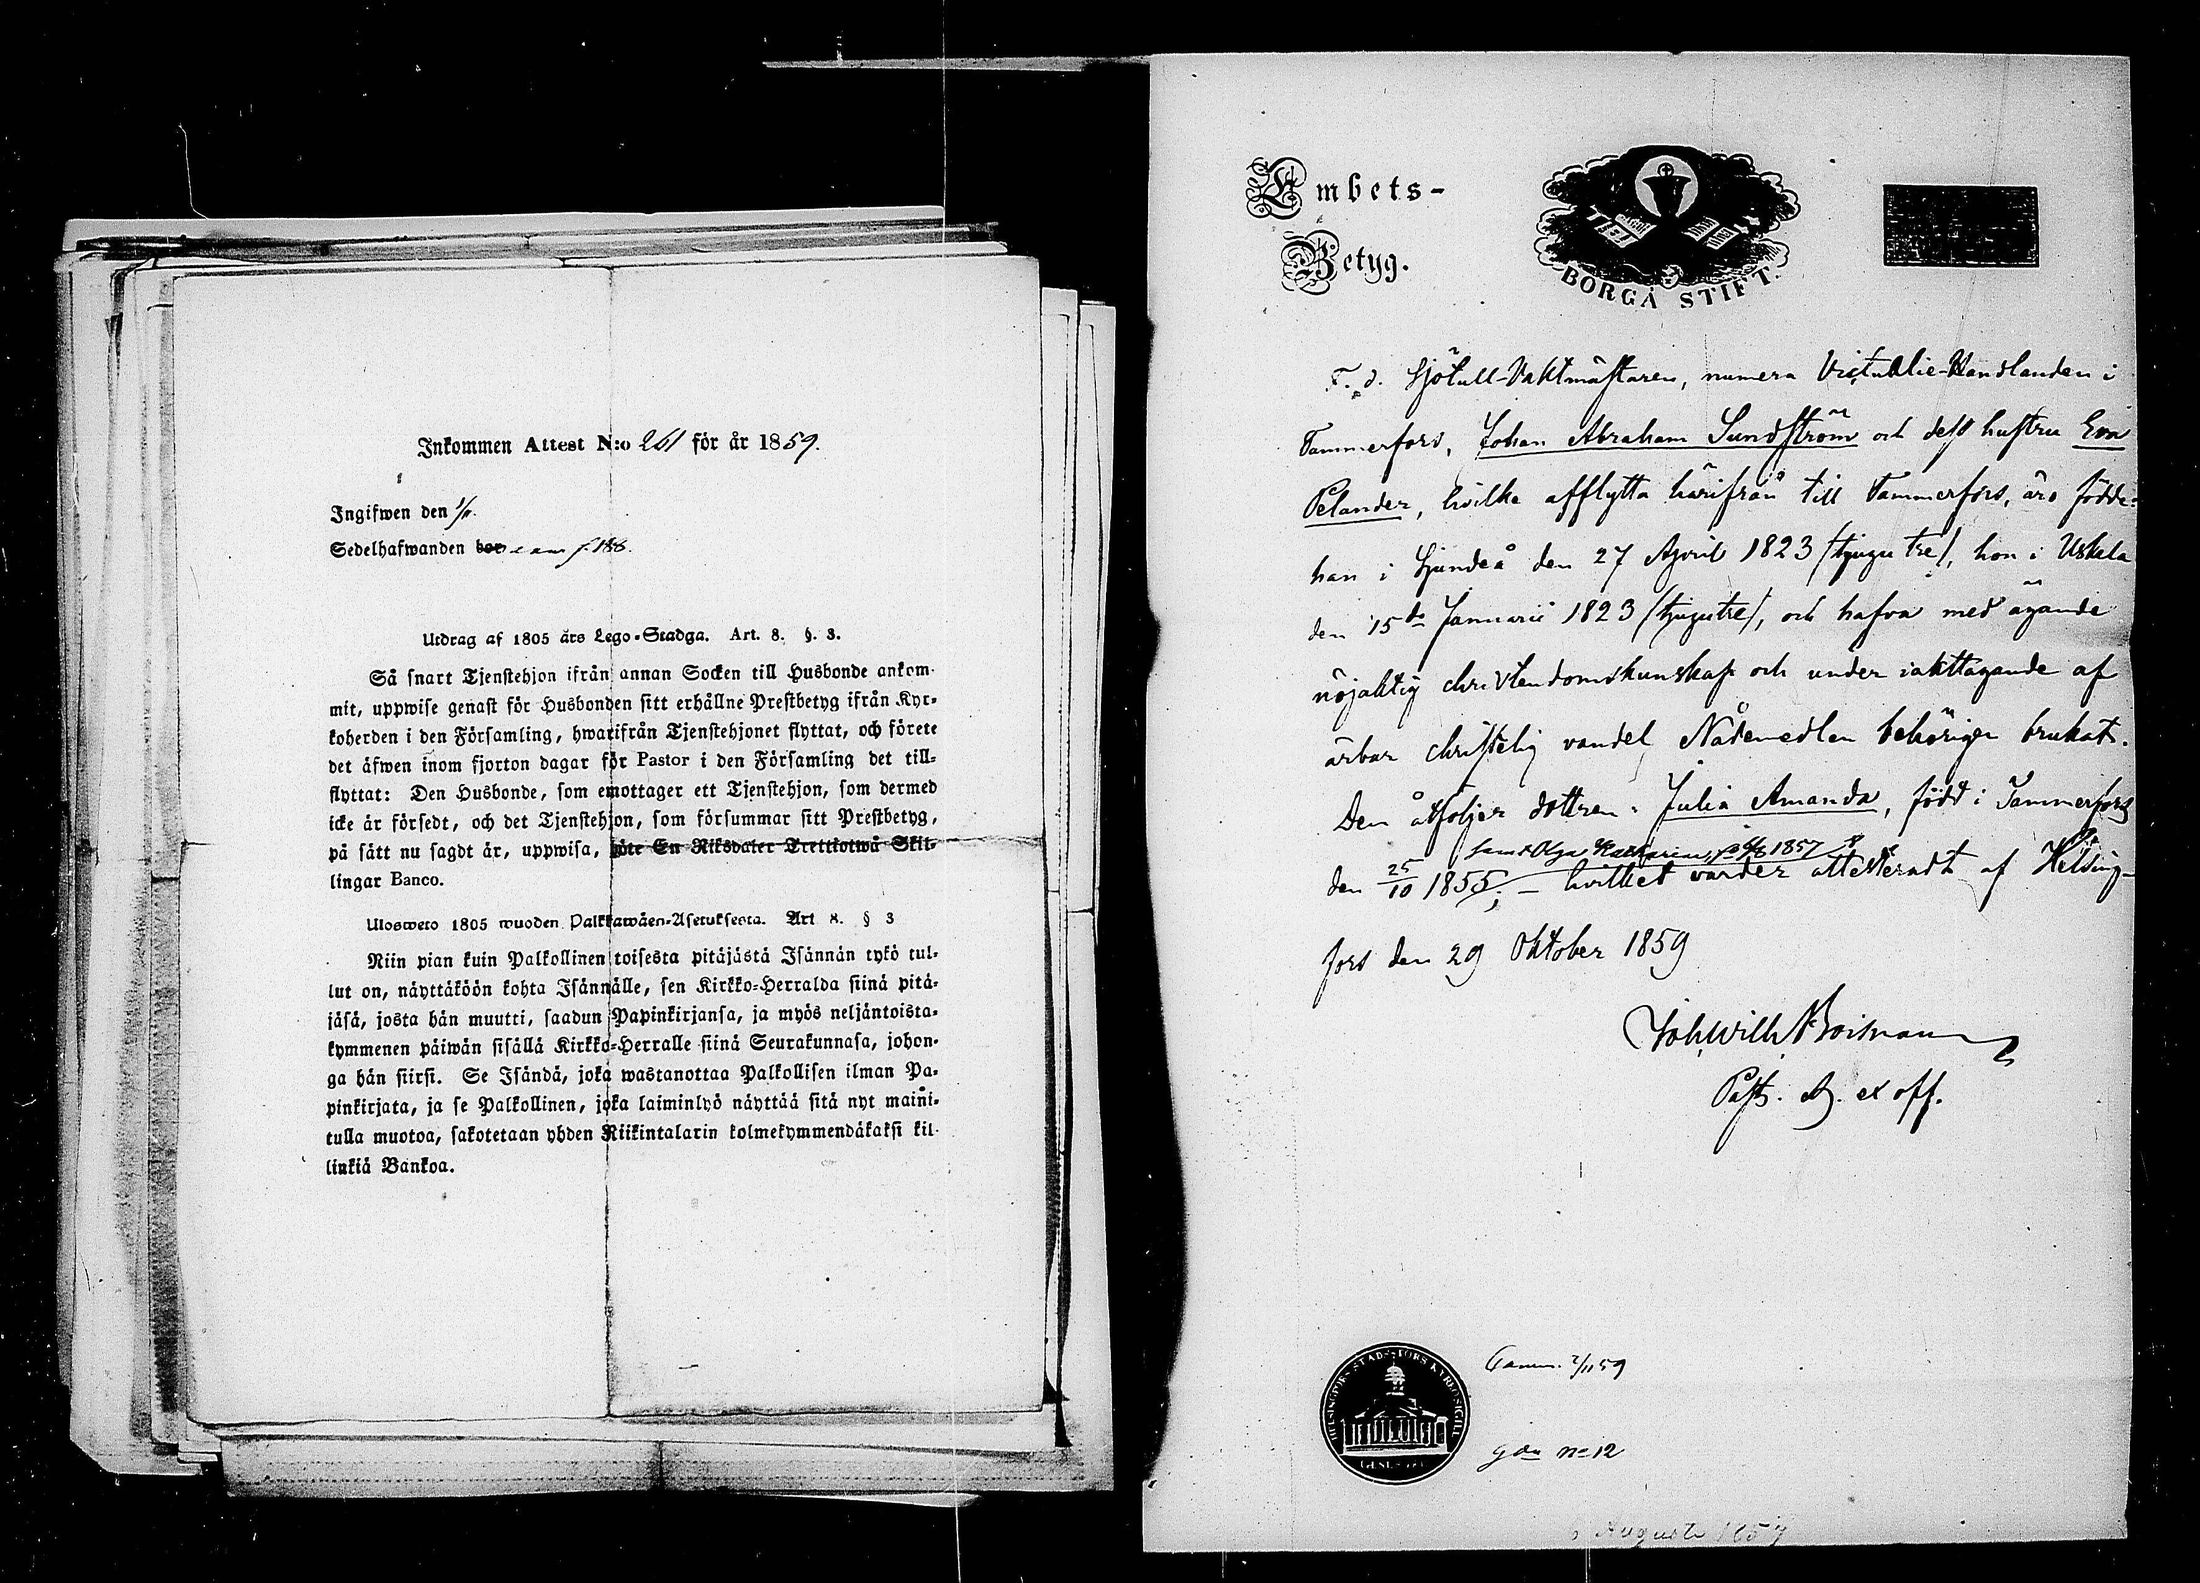 Inkommen Attest N:o 261 för år 1859.
Ingifwen den 1/11.
Sedelhafwanden
Utdrag af 1805 års Lego-Stadga. Art. 8. §. 3.
Så snart Tjenstehjon ifrån annan Socken till Husbonde ankom-
mit, uppwise genast för Husbonden sitt erhållne Prestbetyg ifrån Kyr-
koherden i den Församling, hwarifrån Tjenstehjonet flyttat, och förete
det äfwen inom fjorton dagar för Pastor i den Församling det till-
flyttat: Den Husbonde, som emottager ett Tjenstehjon, som dermed
icke är försedt, och det Tjenstehjon, som försummar sitt Prestbetyg,
på sätt nu sagdt är, uppwisa, böte En Riksdaler Trettiotwå Skil-
lingar Banco.
Ulosweto 1805 wuoden Palkkawäen-Asetuksesta. Art 8. § 3
Niin pian kuin Palkollinen toisesta pitäjästä Isännän tykö tul-
lut on, näyttäköön kohta Isännälle, sen Kirkko-Herralda siinä pitä-
jäsä, josta hän muutti, saadun Papinkirjansa, ja myös neljäntoista-
kymmenen päiwän sisällä Kirkko-Herralle siinä Seurakunnasa, johon-
ga hän siirsi. Se Isändä, joka wastanottaa Palkollisen ilman Pa-
pinkirjata, ja se Palkollinen, joka laiminlyö näyttää sitä nyt maini-
tulla muotoa, sakotetaan yhden Riikintalarin kolmekymmendäkaksi kil-
linkiä Bankoa.
Embets-
Betyg.
BORGÅ STIFT.
F. d. Sjötull-Vaktmästaren, numera Victualie-Handlanden i
Tammerfors, Johan Abraham Sundström och dess hustru Eva
Pelander, hvilka afflytta härifrån till Tammerfors, äro födde:
han i Sjundeå den 27 April 1823 /tjugutre/, hon i Uskela
den 15de Januarii 1823 /tjugutre/, och hafva med ägande
nöjaktig christendomskunskap och under iakttagande af
ärbar christelig vandel Nådemedlen behörigen brukat.
Den åtföljer dottren: Julia Amanda, född i Tammerfors
samt Olga Katharina, f. 1857
den 25/10 1855, – hvilket varder attesteradt af Helsing-
fors den 29 Oktober 1859
Joh. Wilh. Roisman
Past. Adj. ex off.
HELSINGFORS STADS KYRKOSIGILL
Tamm. 2/11 59
gdn No 12
Augusti 1857